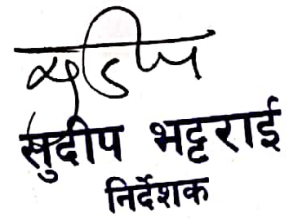 सुदीप
सुदीप भट्टराई
निर्देशक